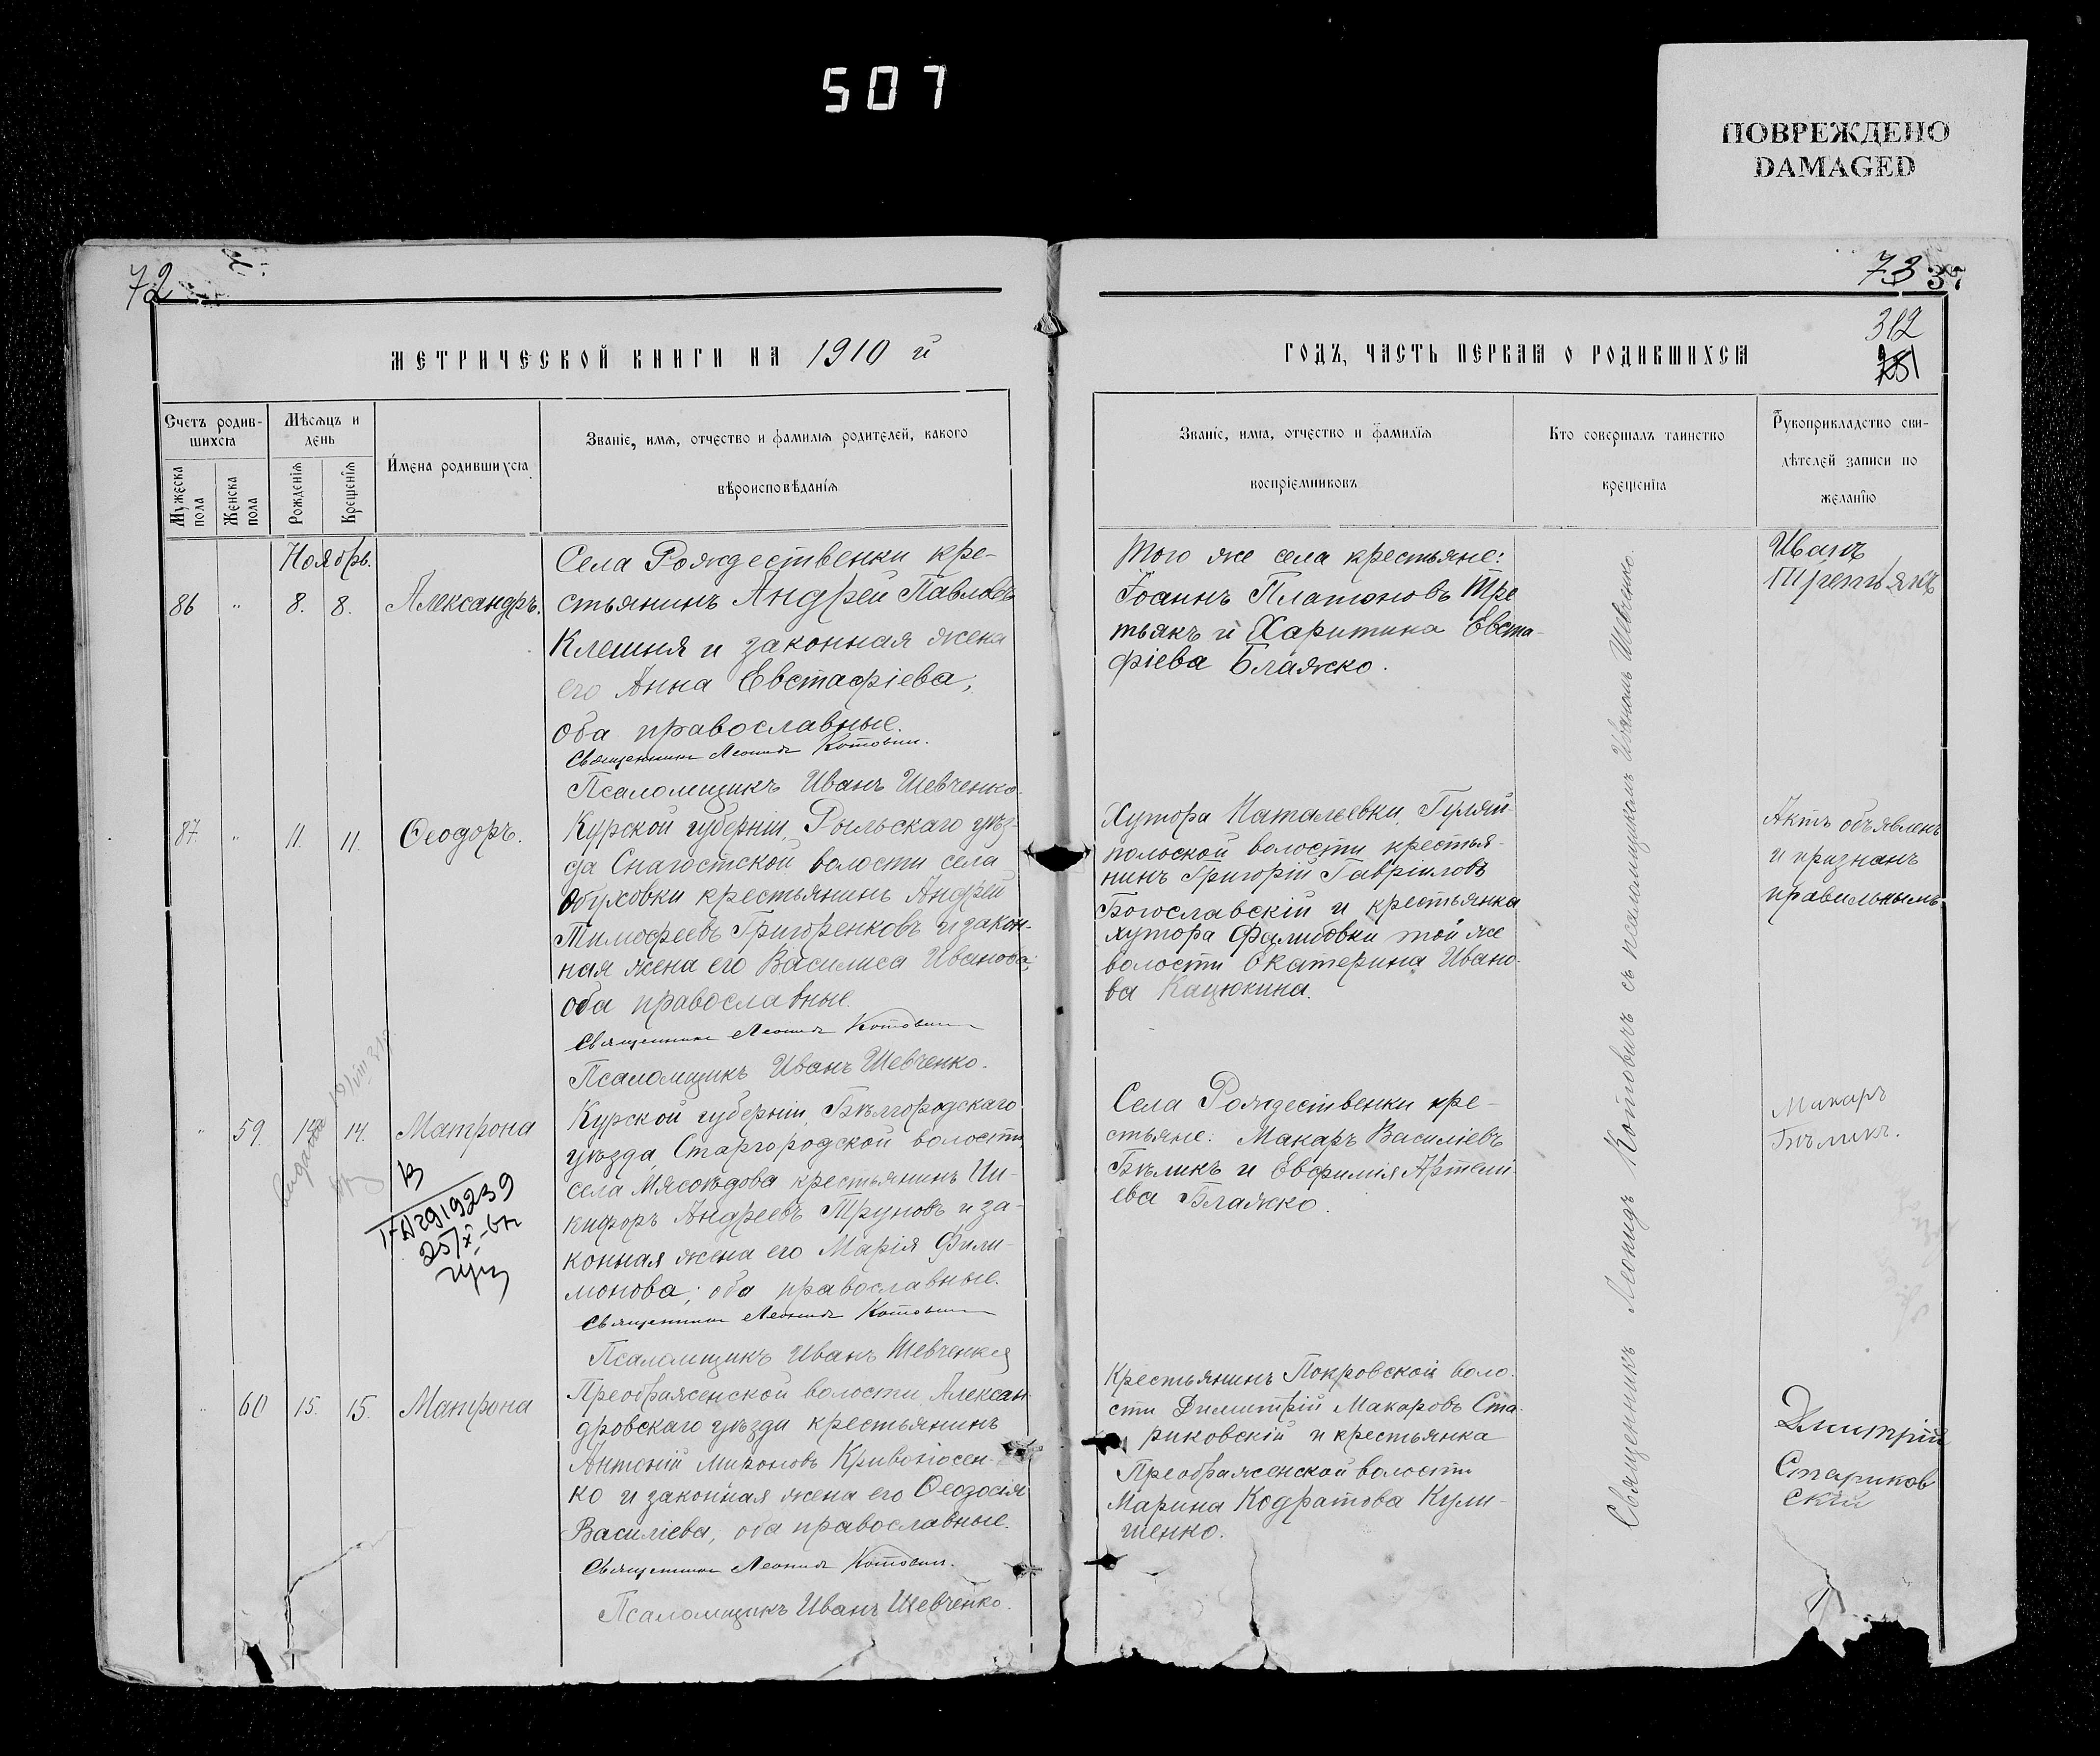 507
ПОВРЕЖДЕНО
DAMAGED
72
73 37
312
251
МЕТРИЧЕСКОЙ КНИГИ НА 1910 й
ГОДЪ, ЧАСТЬ ПЕРВАЯ О РОДИВШИХСЯ
Счетъ родив-
шихся
Мужеска
пола
Женска
пола
Мѣсяцъ и
день
Рожденія
Крещенія
Имена родившихся
Званіе, имя, отчество и фамилія родителей, какого
вѣроисповѣданія
Званіе, имя, отчество и фамилія
воспріемниковъ
Кто совершалъ таинство
крещенія
Рукоприкладство сви-
дѣтелей записи по
желанію
Ноябрь.
86 " 8. 8. Александръ.
Села Рождественки кре-
стьянинъ Андрей Павловъ
Клешня и законная жена
его Анна Евстафіева,
оба православные.
Священникъ Леонидъ Котовичъ.
Псаломщикъ Иванъ Шевченко.
Того же села крестьяне:
Іоаннъ Платоновъ Тре
тьякъ и Харитина Евста-
фіева Блажко.
Иванъ
Третьякъ
87. " 11. 11. Ѳеодоръ.
Курской губерніи, Рыльскаго уѣз-
да Снагостской волости села
Обуховки крестьянинъ Андрей
Тимофеевъ Григоренковъ и закон-
ная жена его Василиса Иванова;
оба православные.
Священникъ Леонидъ Котовичъ
Псаломщикъ Иванъ Шевченко.
Хутора Натальевки, Гуляй-
польской волости крестья-
нинъ Григорій Гавріиловъ
Богославскій и крестьянка
хутора Фалибовки той же
волости Екатерина Ивано-
ва Кацюкина.
Актъ объявленъ
и признанъ
правильнымъ
" 59. 14. 14. Матрона
Курской губерніи, Бѣлгородскаго
уѣзда, Старгородской волости,
села Мясоѣдова крестьянинъ Ни-
кифоръ Андреевъ Труновъ и за-
конная жена его Марія Фили-
монова; оба православные.
Священникъ Леонидъ Котовичъ
Псаломщикъ Иванъ Шевченко
Села Рождественки кре-
стьяне: Макаръ Василіевъ
Бѣликъ и Евфимія Артемі-
ева Блажко.
Макаръ
Бѣликъ.
2919239
" 60 15. 15. Матрона
Преображенской волости Алексан-
дровскаго уѣзда крестьянинъ
Антоній Мироновъ Кривоносен-
ко и законная жена его Ѳеодосія
Василіева, оба православные.
Священникъ Леонидъ Котовичъ.
Псаломщикъ Иванъ Шевченко.
Крестьянинъ Покровской воло-
сти Димитрій Макаровъ Ста-
риковскій и крестьянка
Преображенской волости
Марина Кодратова Кули-
шенко.
Дмитрій
Стариков
скій
Священникъ Леонидъ Котовичъ съ псаломщикомъ Иваномъ Шевченко.